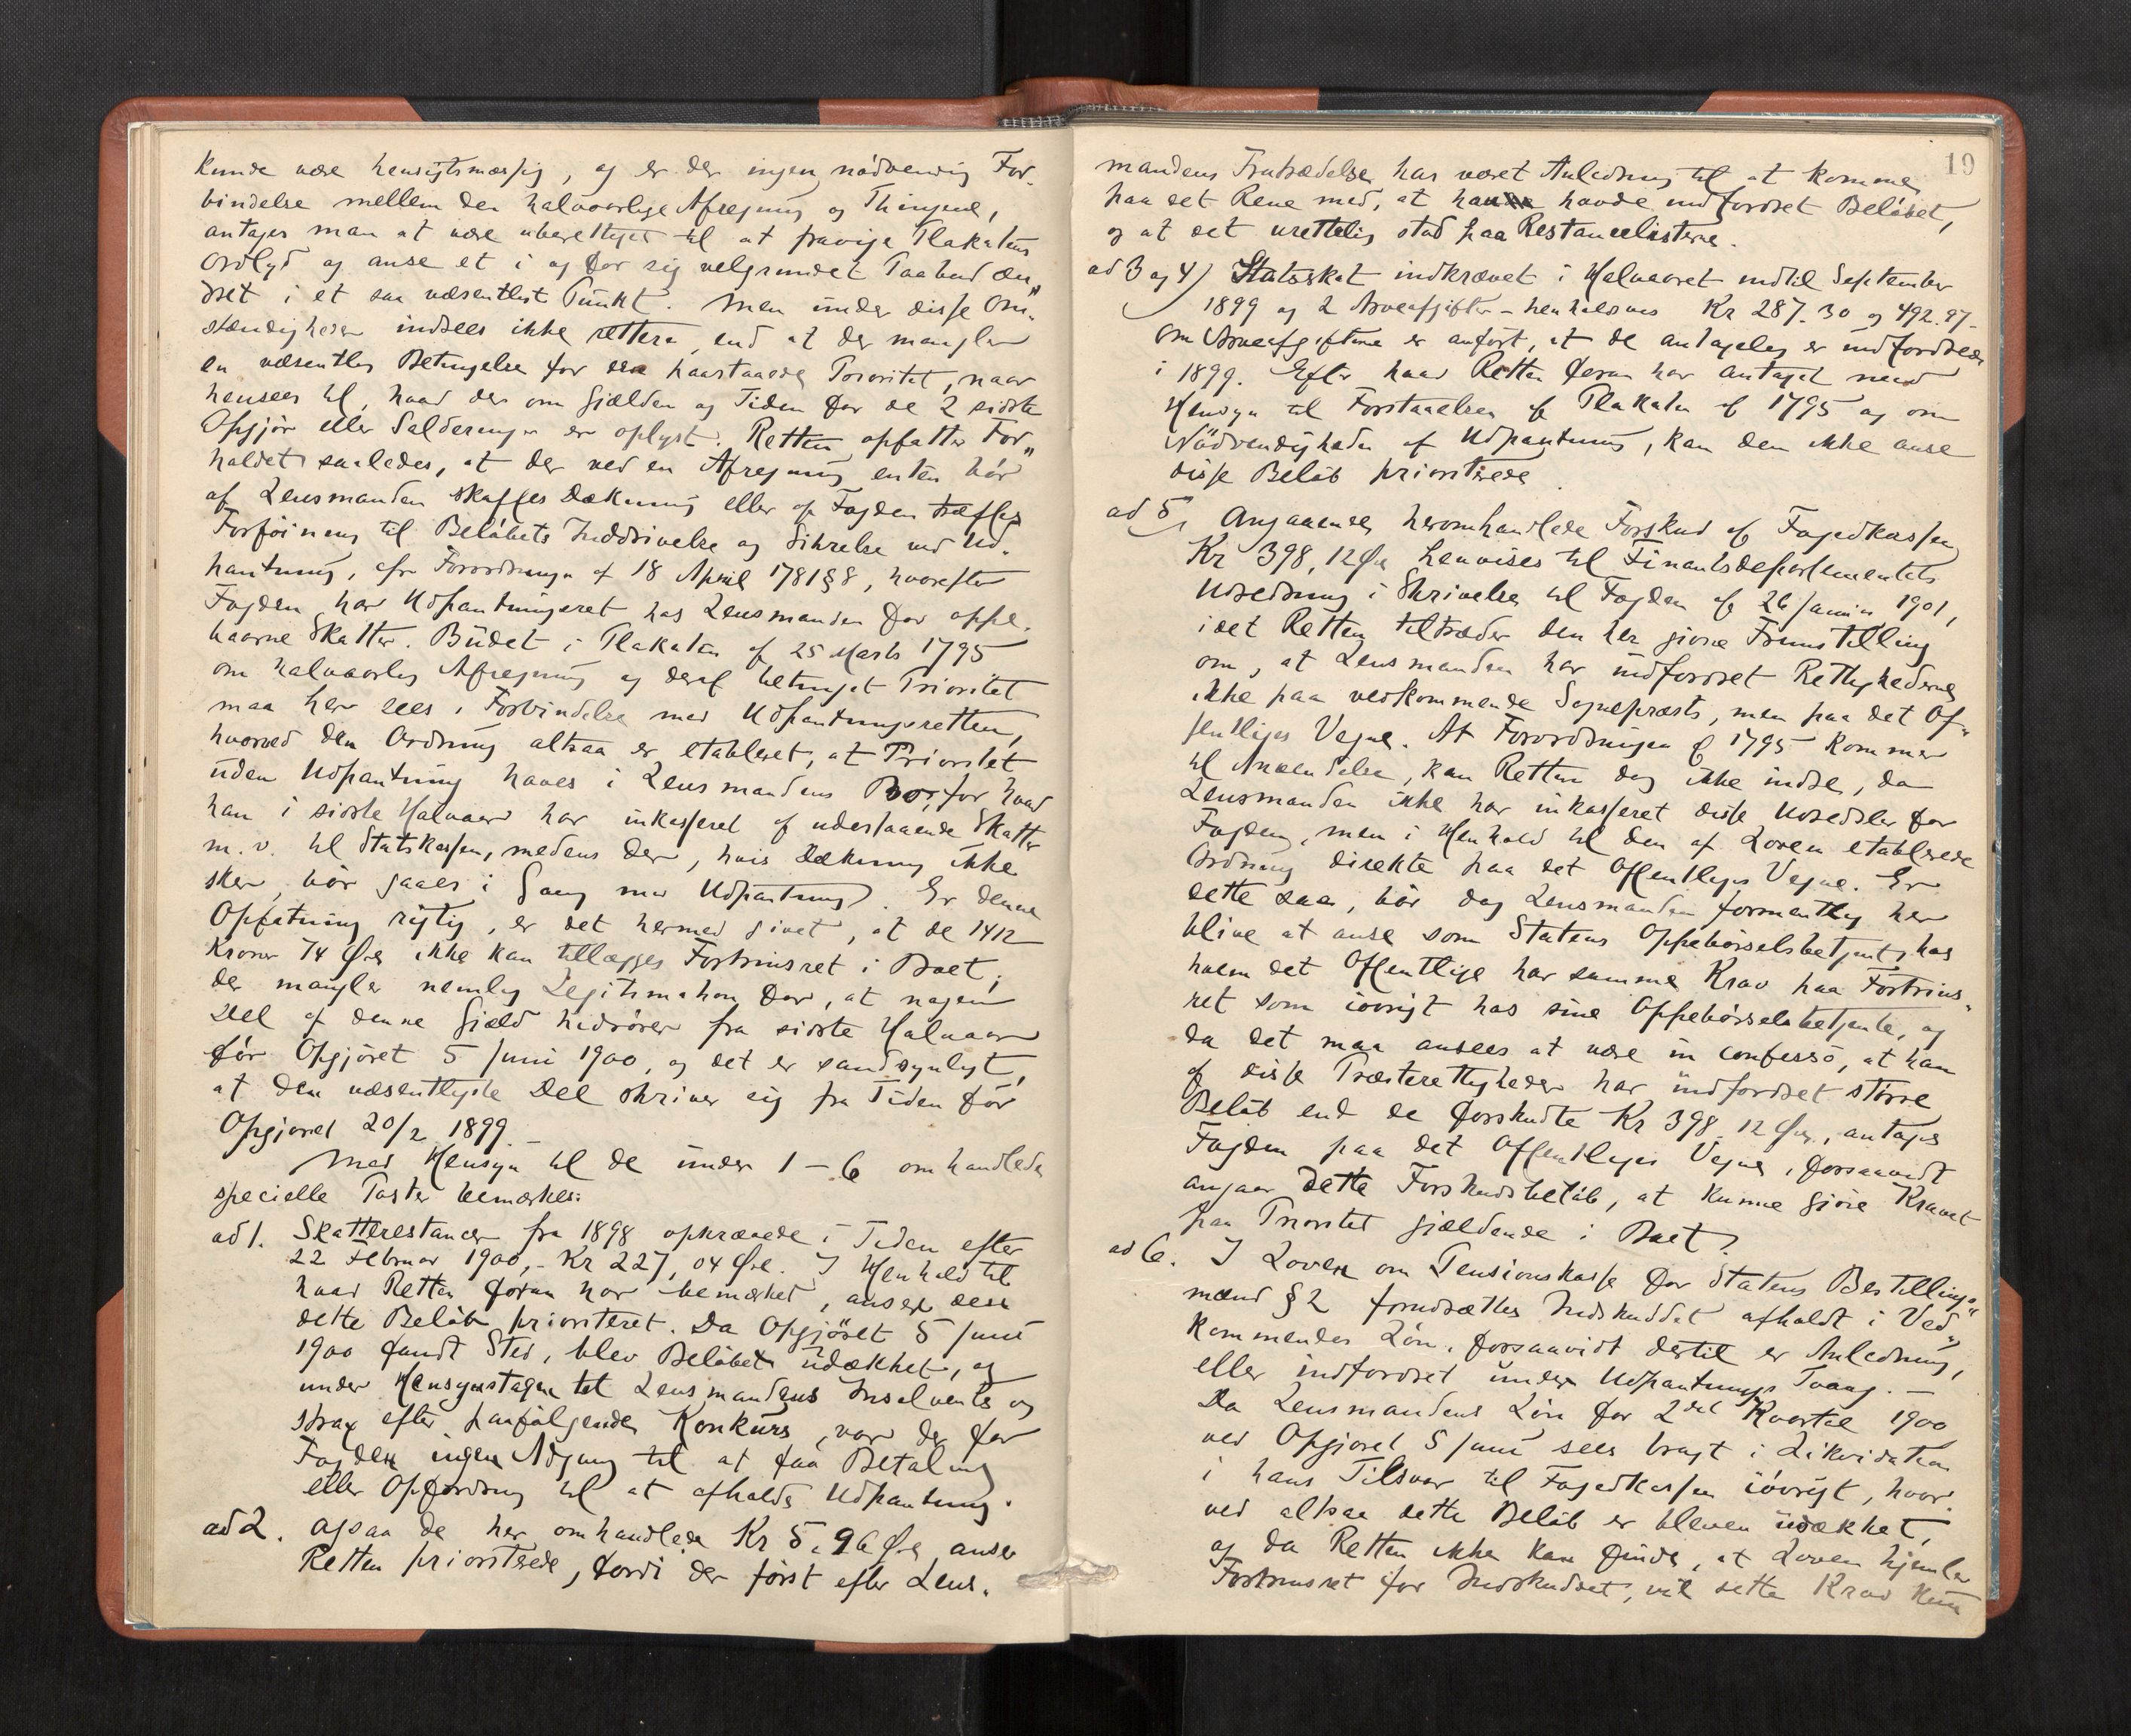 kunde være hensigtsmæssig, og er der ingen nödvendig For-
bindelse mellem den halvaarlige Afregning og Thingene,
antages man at være uberettiget til at fravige Plakatens
Ordlyd og anse et i og for sig velgrundet Paabud æn-
dret i et saa væsentligt Punkt. Men under disse Om-
stændigheder indsees ikke rettere, end at der mangler
en væsentlig Betingelse for den paastaaede Prioritet, naar
hensees til, hvad der om Gjælden og Tiden for de 2 sidste
Opgjör eller Salderinger er oplyst. Retten opfatter For-
holdet saaledes, at der ved en Afregning enten bör
af Lensmanden skaffes Dækning eller af Fogden træffes
Forföining til Belöbets Inddrivelse og Sikrelse ved Ud-
pantning, cfr Forordningen af 18 April 1781 § 8, hvorefter
Fogden har Udpantningsret hos Lensmanden for oppe-
baarne Skatter. Budet i Plakaten af 25 Marts 1795
om halvaarlig Afregning og deraf betinget Prioritet
maa her sees i Forbindelse med Udpantningsretten,
hvorved den Ordning altsaa er etableret, at Prioritet
uden Udpantning haves i Lensmandens Bo, for hvad
han i sidste Halvaar har inkasseret af udestaaende Skatter
m. v. til Statskassen, medens der, hvis Dækning ikke
sker, bör gaaes i Gang med Udpantning. Er denne
Opfatning rigtig, er det hermed givet, at de 1412
Kroner 74 Øre ikke kan tillægges Fortrinsret i Boet;
der mangler nemlig Legitimation for, at nogen
Del af denne Gjæld hidrörer fra sidste Halvaar
för Opgjöret 5 Juni 1900, og det er sandsynligt,
at den væsentligste Del skriver sig fra Tiden för
Opgjöret 20/2 1899.–
Med Hensyn til de under 1 – 6 omhandlede
specielle Poster bemærkes:
ad 1. Skatterestancer fra 1898 opkrævede i Tiden efter
22 Februar 1900,- Kr 227, 04 Øre. I Henhold til
hvad Retten foran har bemærket, anser den
dette Belöb prioriteret. Da Opgjöret 5 Juni
1900 fandt Sted, blev Belöbet udækket, og
under Hensyntagen til Lensmandens Insolvents og
strax efter paafölgende Konkurs, var der for
Fogden ingen Adgang til at faa Betaling
eller Opfordring til at afholde Udpantning.
ad 2. Ogsaa de her omhandlede Kr 5.96 Øre anser
Retten prioriterede, fordi der först efter Lens-
19
mandens Fratrædelse har været Anledning til at komme
paa det Rene med, at han havde indfordret Belöbet,
og at det urettelig stod paa Restancelisterne.
ad 3 og 4) Statsskat indkrævet i Halvaaret indtil September
1899 og 2 Arveafgifter – henholdsvis Kr 287.30 og 492.97.–
Om Arveafgifterne er anfört, at de antagelig er indfordrede
i 1899. Efter hvad Retten foran har antaget med
Hensyn til Forstaaelsen af Plakaten af 1795 og om
Nödvendigheden af Udpantning, kan den ikke anse
disse Belöb prioriterede.
ad 5, Angaaende heromhandlede Forskud af Fogedkassen
Kr 398, 12 Øre henvises til Finantsdepartementets
Udredning i Skrivelse til Fogden af 26 Januar 1901,
idet Retten tiltræder den her givne Fremstilling
om, at Lensmanden har indfordret Rettighederne
ikke paa vedkommende Sogneprests, men paa det Of-
fentliges Vegne. At Forordningen af 1795 kommer
til Anvendelse, kan Retten dog ikke indse, da
Lensmanden ikke har inkasseret disse Udredsler for
Fogden, men i Henhold til den af Loven etablerede
Ordning direkte paa det Offentliges Vegne. Er
dette saa, bör dog Lensmanden formentlig her
blive at anse som Statens Oppebörselsbetjent, hos
hvem det Offentlige har samme Krav paa Fortrins-
ret som iövrigt hos sine Oppebörselsbetjente, og
da det maa ansees at være in confesso, at han
af disse Presterettigheder har indfordret större
Belöb end de forskudte Kr 398, 12 Øre, antages
Fogden paa det Offentliges Vegne, forsaavidt
angaar dette Forskudsbelöb, at kunne gjöre Kravet
paa Prioritet gjældende i Boet.
ad 6. I Loven om Pensionskasse for Statens Bestillings-
mænd § 2 forudsættes Indskuddet afholdt i Ved-
kommendes Lön, forsaavidt dertil er Anledning,
eller indfordret under Udpantnings Tvang.–
Da Lensmandens Lön for 2det Kvartal 1900
ved Opgjöret 5 Juni sees bragt i Likvidation
i hans Tilsvar til Fogedkassen iövrigt, hvor-
ved altsaa dette Belöb er bleven udækket,
og da Retten ikke kan finde, at Loven hjemler
Fortrinsret for Indskuddet, vil dette Krav kun